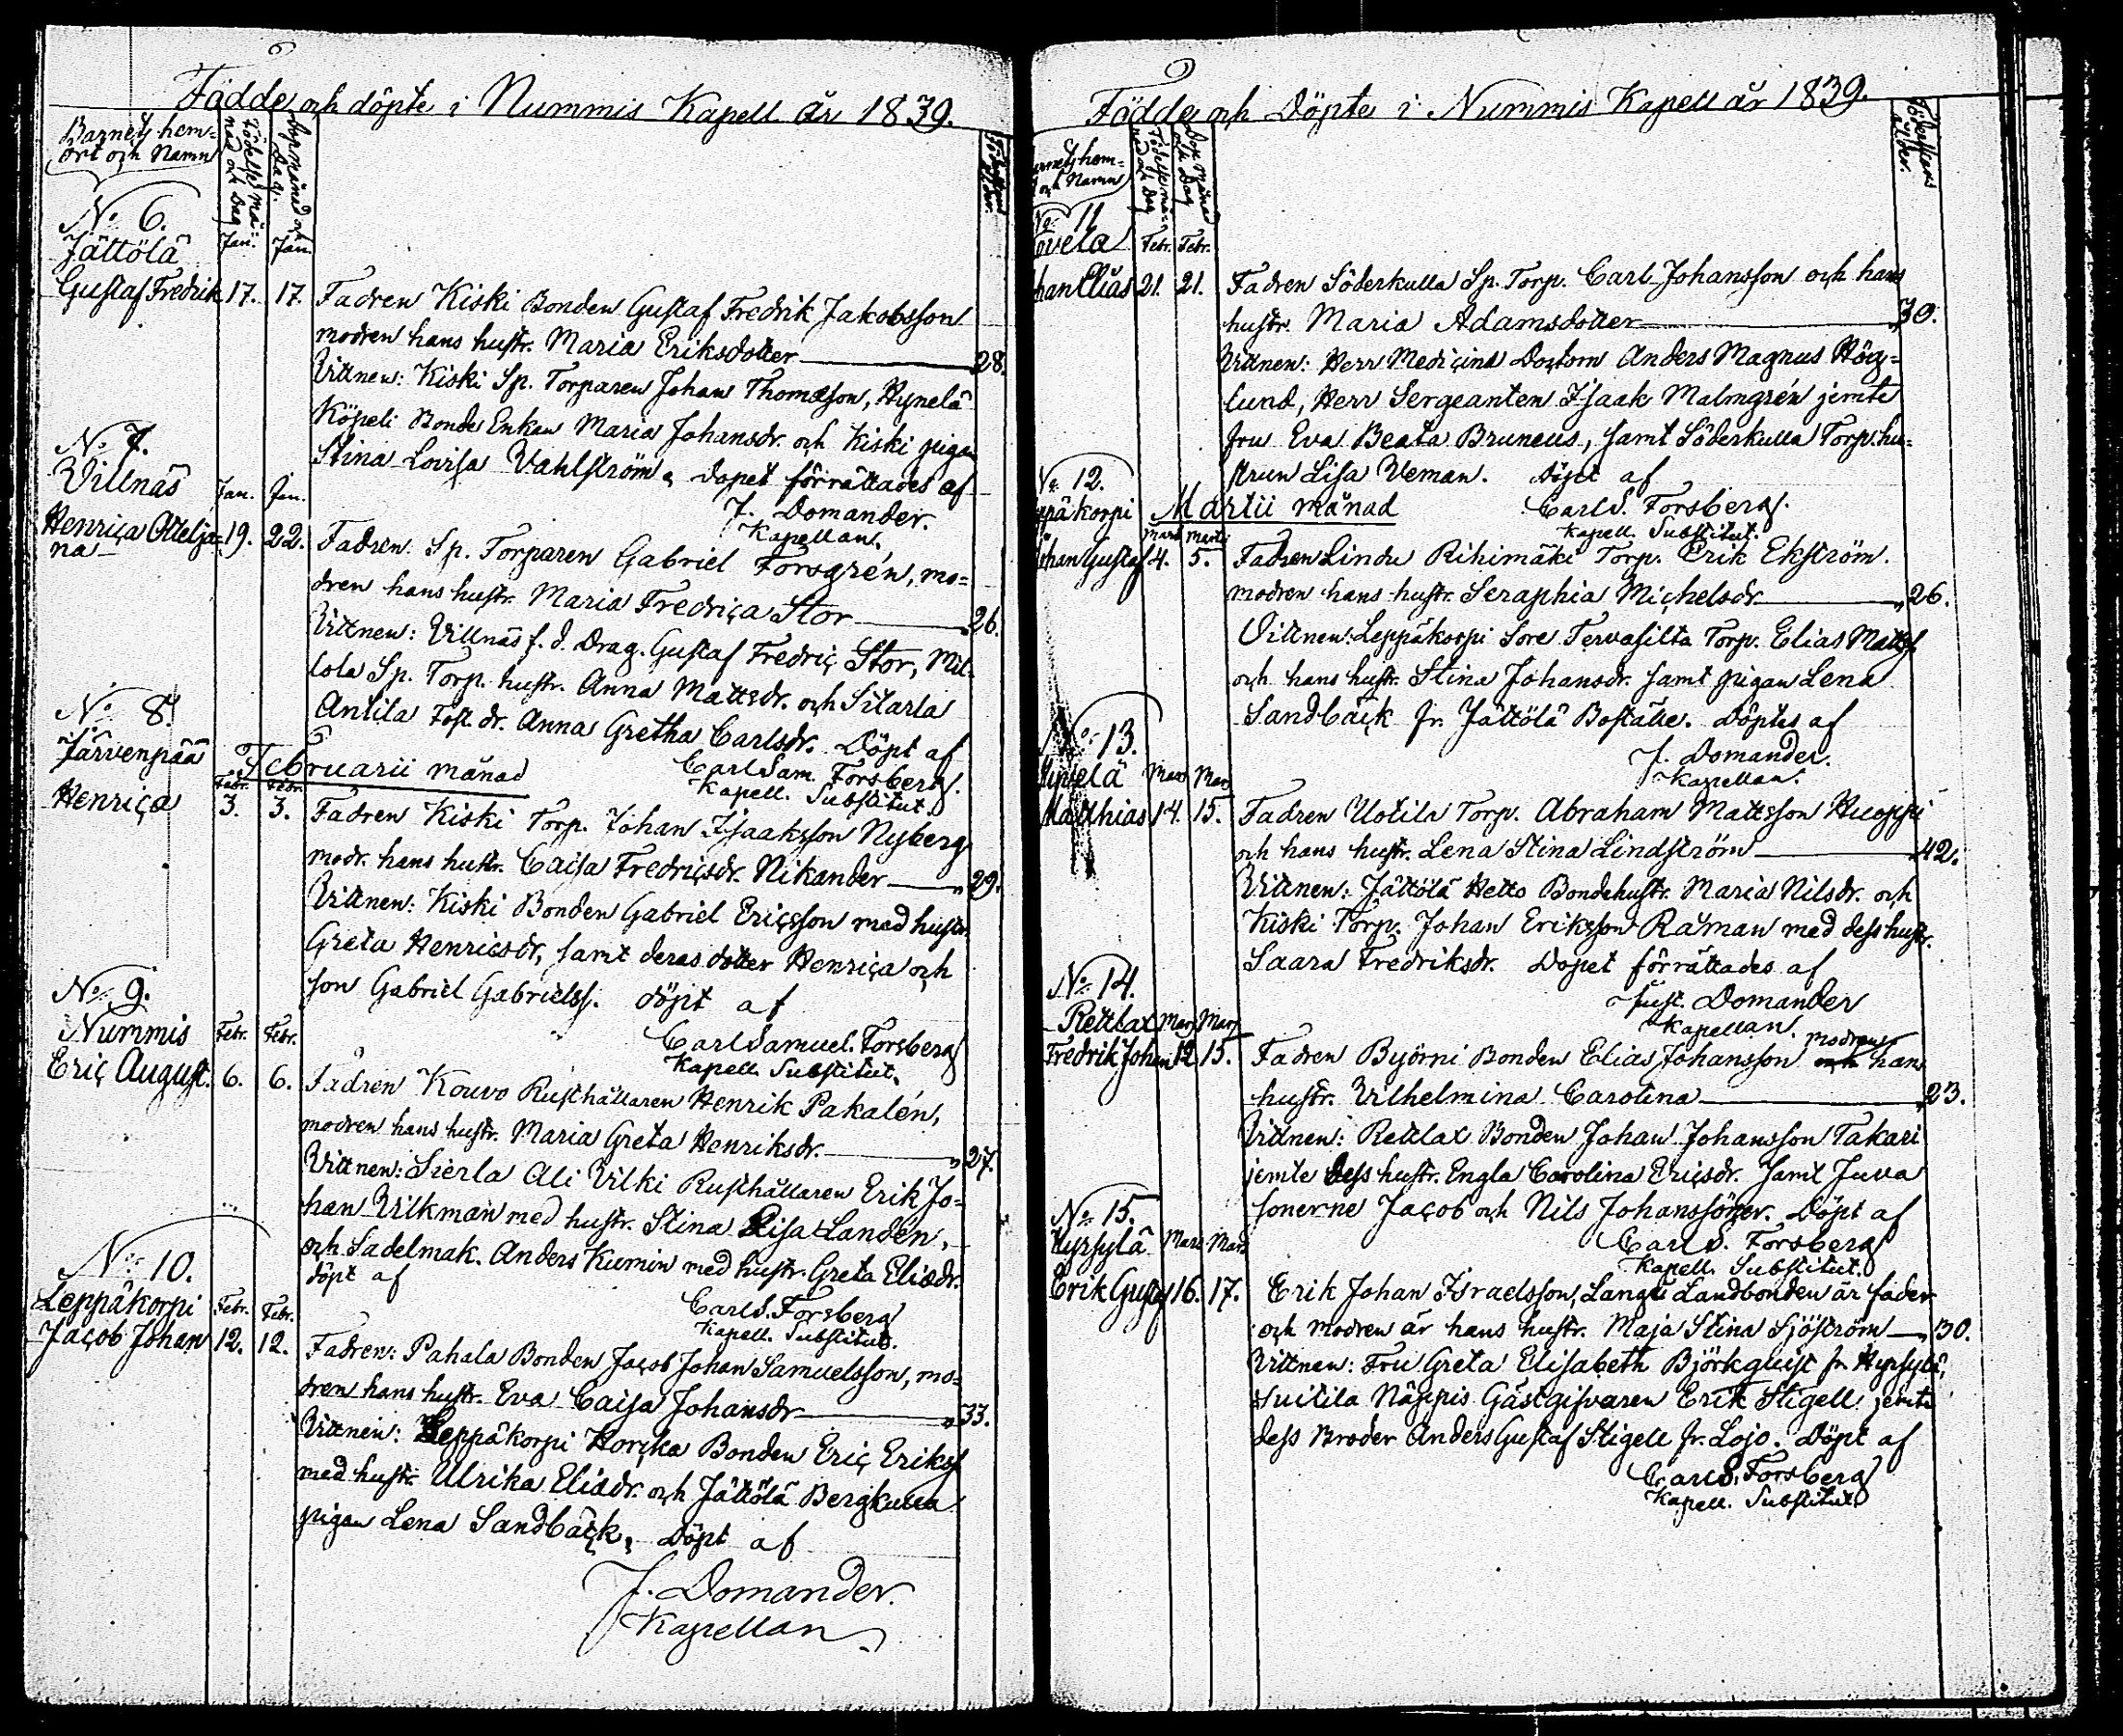 Födde och döpte i Nummis Kapell år 1839.
Barnets hem=
ort och Namn
Födelse må=
nad och Dag
Dop månad och
Dag.
No 6.
Jättölä
Jan. Jan.
Gustaf Fredrik 17. 17. Fadren Kiski Bonden Gustaf Fredrik Jakobsson
modren hans hustr. Maria Eriksdotter 28.
Vittnen: Kiski Sp. Torparen Johan Thomasson, Hynelä
Köpeli Bonde Enkan Maria Johansdr. och Kiski pigan
Stina Lovisa Vahlström, Dopet förrättades af
J. Domander.
Kapellan.
No 7.
Villnäs Jan. Jan.
Henrica Ottelja=
na 19. 22. Fadren Sp. Torparen Gabriel Forsgrén, mo=
dren hans hustr. Maria Fredrica Stor 26.
Vittnen: Villnäs f. d. Drag. Gustaf Fredric Stor, Mil=
lola Sp. Torp. hustr. Anna Mattsdr. och Sitarla
Antila Fost. dr. Anna Gretha Carlsdr. Döpt af
Carl Sam. Forsberg.
Kapell. Substitut.
No 8.
Järvenpää
Februarii månad
Febr. Febr.
Henrica 3. 3. Fadren Kiski Torp. Johan Isaaksson Nyberg
modr. hans hustr. Caisa Fredricsdr. Nikander „ 29.
Vittnen: Kiski Bonden Gabriel Ericsson med hustr.
Greta Henricsdr, samt deras dotter Henrica och
son Gabriel Gabrielss. döpt af
Carl Samuel Forsberg
Kapell. Substitut.
No 9.
Nummis Febr. Febr.
Eric August. 6. 6. Fadren Kouvo Rusthållaren Henrik Pakalén,
modren hans hustr. Maria Greta Henriksdr. „ 27.
Vittnen: Sierla Ali Vilki Rusthållaren Erik Jo=
han Vilkman med hustr. Stina Lisa Landen,
och Sadelmak. Anders Kumin med hustr. Greta Eliædr.
döpt af
Carl S. Forsberg
Kapell. Substitut.
No 10.
Leppäkorpi Febr. Febr.
Jacob Johan 12. 12. Fadren: Pahala Bonden Jacob Johan Samuelsson, mo=
dren hans hustr. Eva Caisa Johansdr „ 33.
Vittnen: Leppäkorpi Horcka Bonden Eric Eriks.
med hustr. Ulrika Eliædr. och Jättölä Bergkulla
pigan Lena Sandbäck, Döpt af
J. Domander.
Kapellan
Födde och Döpte i Nummis Kapell år 1839.
Födelse må=
nad och Dag
Dop månad
och Dag
Föderskans
ålder.
No 11
Febr. Febr.
21. 21. Fadren Söderkulla Sp. Torp. Carl Johansson och hans
hustr. Maria Adamsdotter „ 30.
Vittnen: Herr Medicinæ Doctorn Anders Magnus Hög=
lund, Herr Sergeanten Isaak Malmgrén jemte
fru Eva Beata Bruneus, samt Söderkulla Torp. hu=
strun Lisa Veman. Döpt af
Carl S. Forsberg.
Kapell. Substitut.
No 12.
Martii månad
Marti Marti
4. 5. Fadren Lindu Rihimäki Torp. Erik Ekström.
modren hans hustr. Seraphia Michelsdr. „ 26.
Vittnen: Leppäkorpi Sore Tervasilta Torp. Elias Matts.
och hans hustr. Stina Johansdr. samt pigan Lena
Sandbäck fr. Jättölä Boställe. Döptes af
J. Domander.
Kapellan.
No 13.
Mars Mars
Matthias 14. 15. Fadren Uotila Torp. Abraham Mattsson Huoppi
och hans hustr. Lena Stina Lindström „ 42.
Vittnen: Jättölä Hetto Bondehustr. Maria Nilsdr. och
Kiski Torp. Johan Eriksson Raman med dess hustr.
Saara Fredriksdr. Dopet förrättades af
Just. Domander
Kapellan.
No 14.
Rettlax Mars Mars
Fredrik Johan 12. 15. Fadren Byörni Bonden Elias Johansson modren hans
hustr. Vilhelmina Carolina „ 23.
Vittnen: Rettlax Bonden Johan Johansson Takari
jemte dess hustr. Engla Carolina Ericsdr. samt Juva
sonerne Jacob och Nils Johanssöner. Döpt af
Carl S. Forsberg
Kapell. Substitut.
No 15.
Hyrsylä Mars Mars
Erik Gustaf 16. 17. Erik Johan Israelsson, Langi Landbonden är fader
och modren är hans hustr. Maja Stina Sjöström „ 30.
Vittnen: Fru Greta Elisabeth Björkquist fr. Hyrsylä,
Huitila Näppis Gästgifvaren Erik Stigell jemte
dess Broder Anders Gustaf Stigell fr. Lojo. Döpt af
Carl S. Forsberg
Kapell. Substitut.